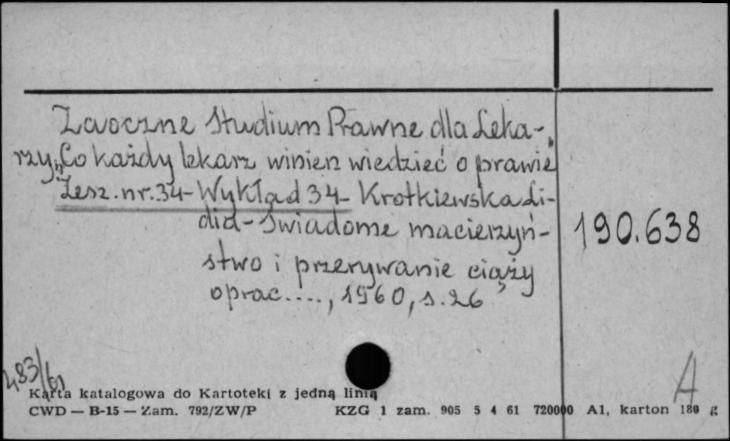 Zaoczne Studium Prawne dla Leka-
rzy "Co każdy lekarz winien wiedzieć o prawie"
Zesz. nr. 34 - Wykład 34 - Krotkiewska Li-
dia - Świadome macierzyń-
stwo i przerywanie ciąży
oprac...., 1960, s. 26
190.638
483/61
A
Karta katalogowa do Kartoteki z jedną linią
CWD — B-15 — Zam. 792/ZW/P KZG 1 zam. 905 5 4 61 720000 A1, karton 180 g